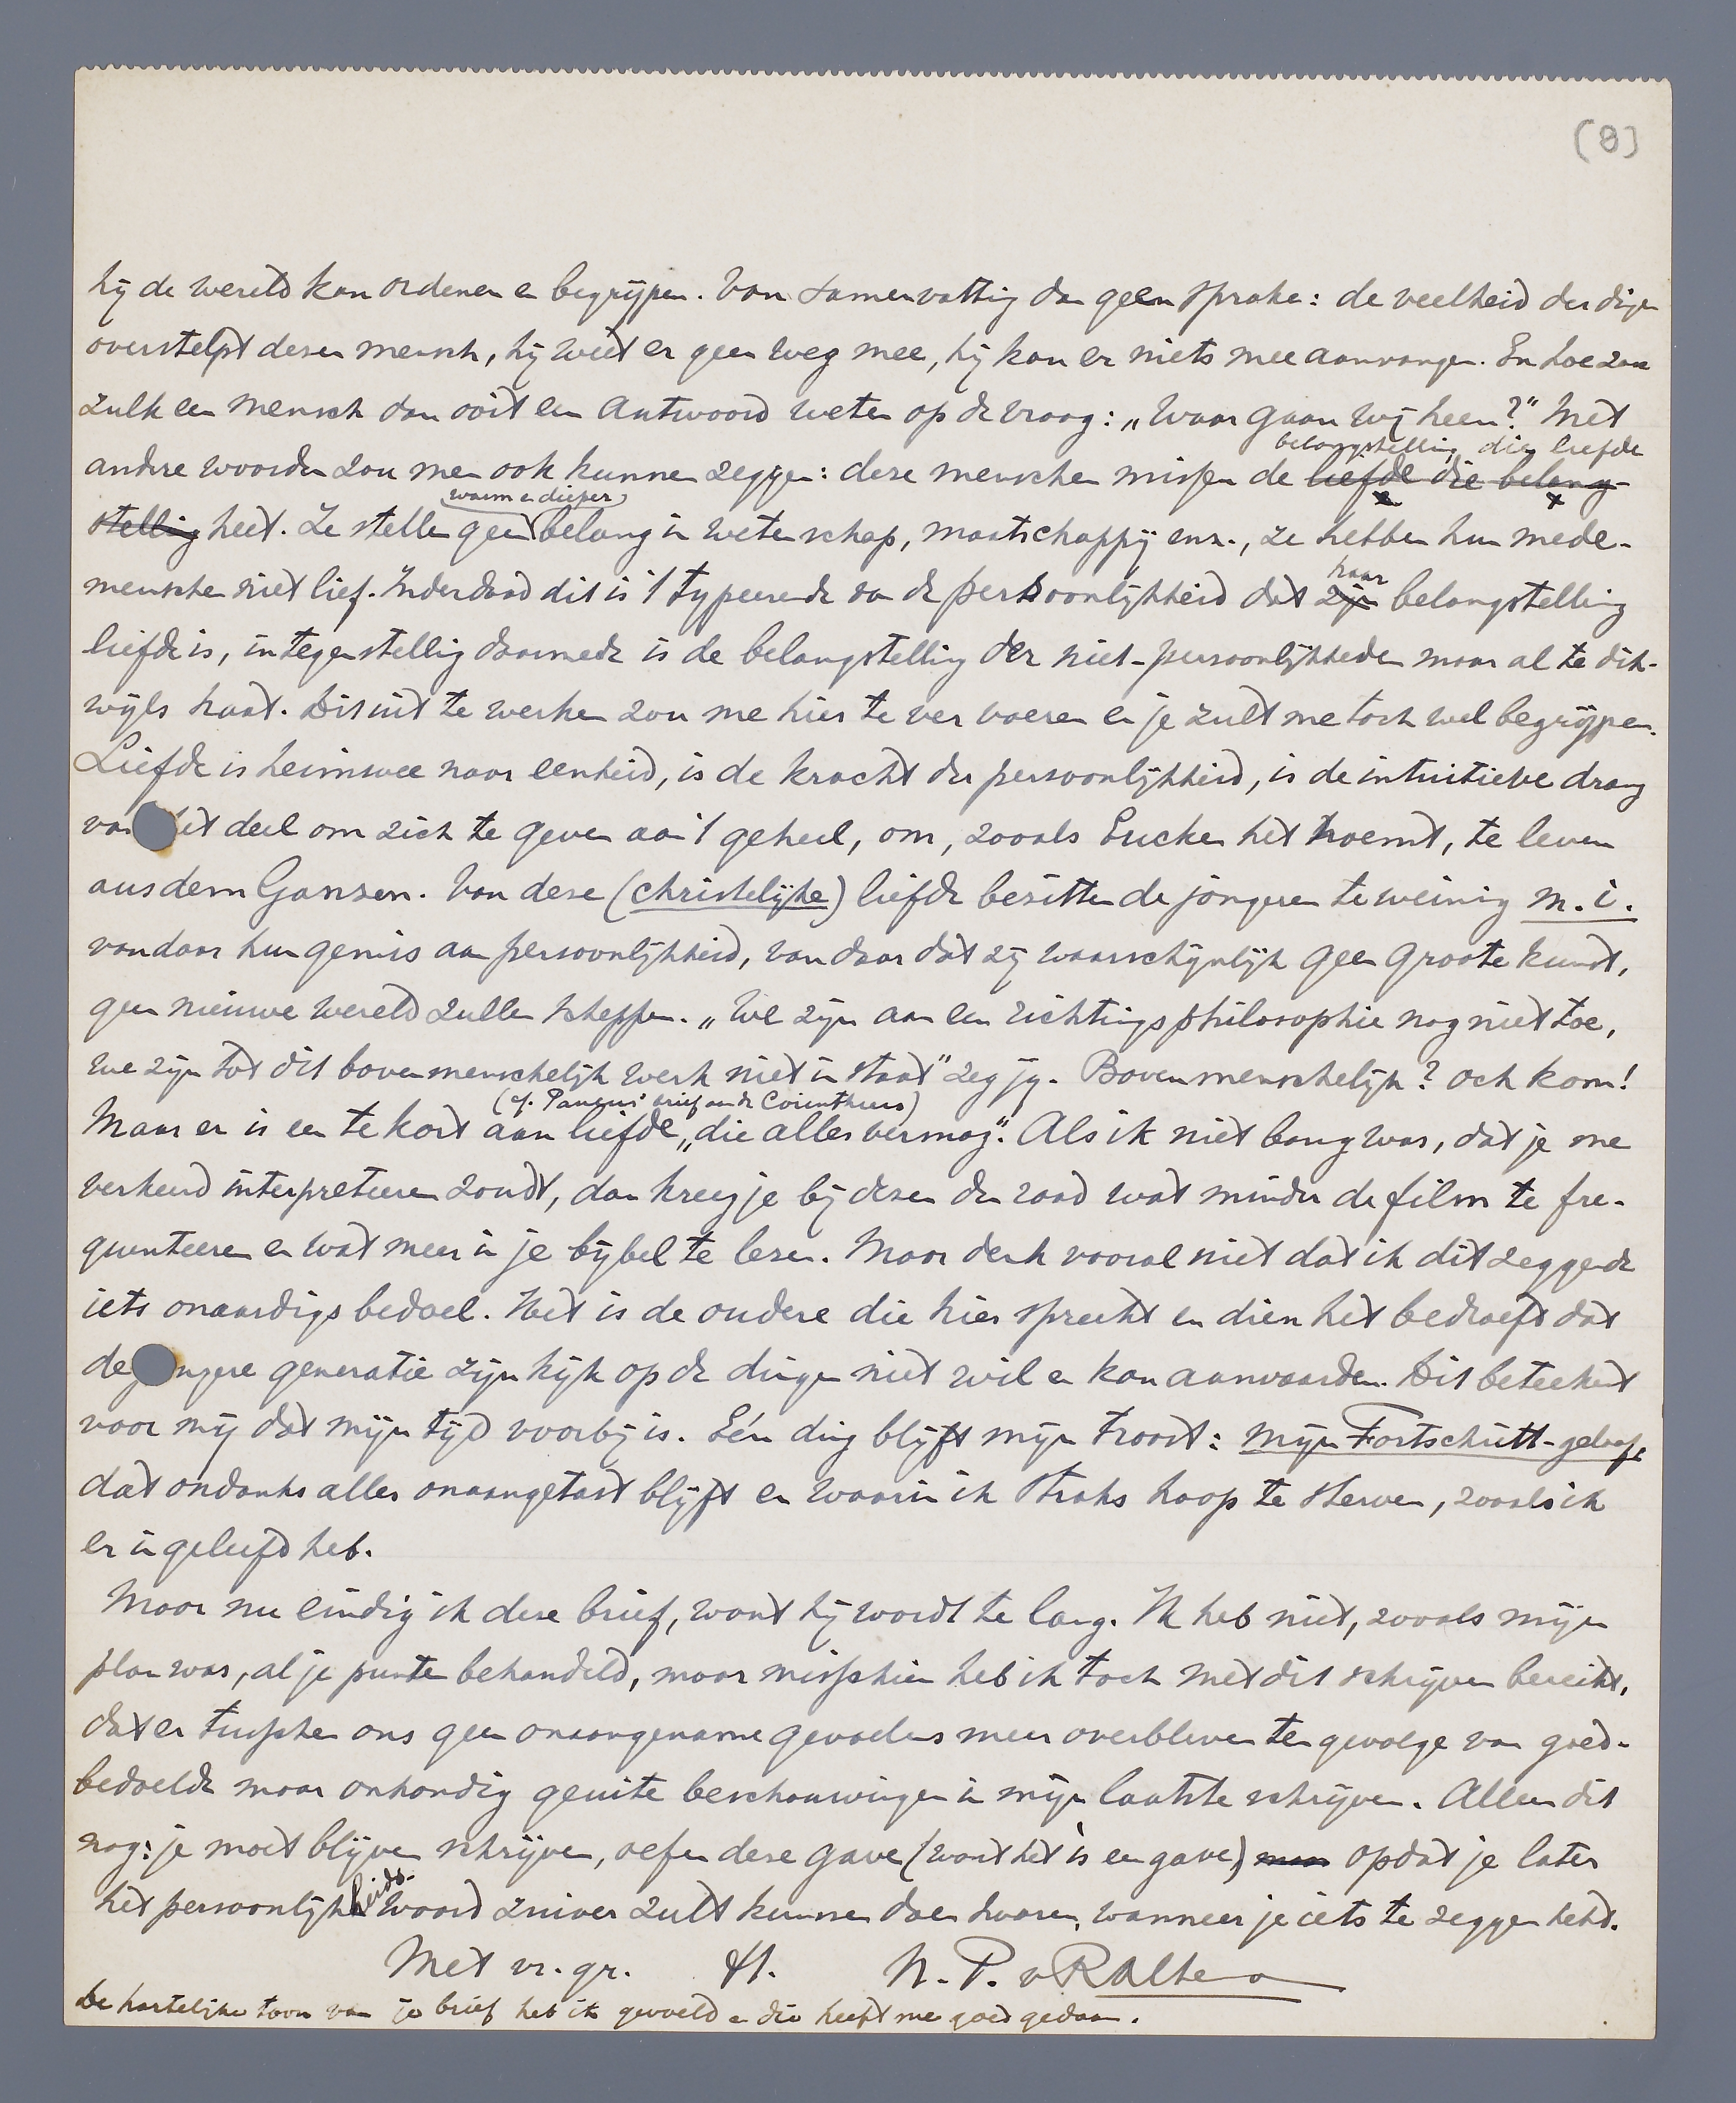 (8)
hij de wereld kan ordenen en begrijpen. Van samenvatting dan geen sprake: de veelheid der dingen
overstelpt dezen mensch, hij weet er geen weg mee, hij kan er niets mee aanvangen. En hoe zou
zulk een mensch dan ooit een antwoord weten op de vraag: „Waar gaan wij heen?" Met
belangstelling die liefde
andere woorden zou men ook kunnen zeggen: deze menschen missen de liefde die belang-
warm en dieper
stelling heet. Ze stellen geen belang in wetenschap, maatschappij enz., ze hebben hun mede-
haar
menschen niet lief. Inderdaad dit is 't typeerende van de persoonlijkheid dat zijn belangstelling
liefde is, in tegenstelling daarmede is de belangstelling der niet-persoonlijkheden maar al te dik-
wijls haat. Dit uit te werken zou me hier te ver voeren en je zult me toch wel begrijpen.
Liefde is heimwee naar eenheid, is de kracht der persoonlijkheid, is de intuitieve drang
van het deel om zich te geven aan 't geheel, om, zooals Eucken het noemt, te leven
aus dem Ganzen. Van deze (christelijke) liefde bezitten de jongeren te weinig m.i.
vandaar hun gemis aan persoonlijkheid, van daar dat zij waarschijnlijk geen groote kunst,
geen nieuwe wereld zullen scheppen. „We zijn aan een richtingsphilosophie nog niet toe,
we zijn tot dit bovenmenschelijk werk niet in staat" zeg jij. Bovenmenschelijk? och kom!
(cf. Paulus' brief aan de Corinthiers)
Maar er is een te kort aan liefde „die alles vermag". Als ik niet bang was, dat je me
verkeerd interpreteeren zoudt, dan kreeg je bij dezen den raad wat minder de film te fre-
quenteeren en wat meer in je bijbel te lezen. Maar denk vooral niet dat ik dit zeggende
iets onaardigs bedoel. Het is de oudere die hier spreekt en dien het bedroeft dat
de jongere generatie zijn kijk op de dingen niet wil en kan aanvaarden. Dit beteekent
voor mij dat mijn tijd voorbij is. Eén ding blijft mijn troost: mijn Fortschritt-geloof,
dat ondanks alles onaangetast blijft en waarin ik straks hoop te sterven, zooals ik
er in geleefd heb.
Maar nu eindig ik deze brief, want hij wordt te lang. Ik heb niet, zooals mijn
plan was, al je punten behandeld, maar misschien heb ik toch met dit schrijven bereikt,
dat er tusschen ons geen onaangename gevoelens meer overbleven ten gevolge van goed-
bedoelde maar onhandig geuite beschouwingen in mijn laatste schrijven. Alleen dit
nog: je moet blijven schrijven, oefen deze gave (want het is een gave) maar opdat je later
heids-
het persoonlijk woord zuiver zult kunnen doen hooren, wanneer je iets te zeggen hebt.
Met vr. gr. H. N. P. v R Alte
De hartelijke toon van je brief heb ik gevoeld en die heeft me goed gedaan.